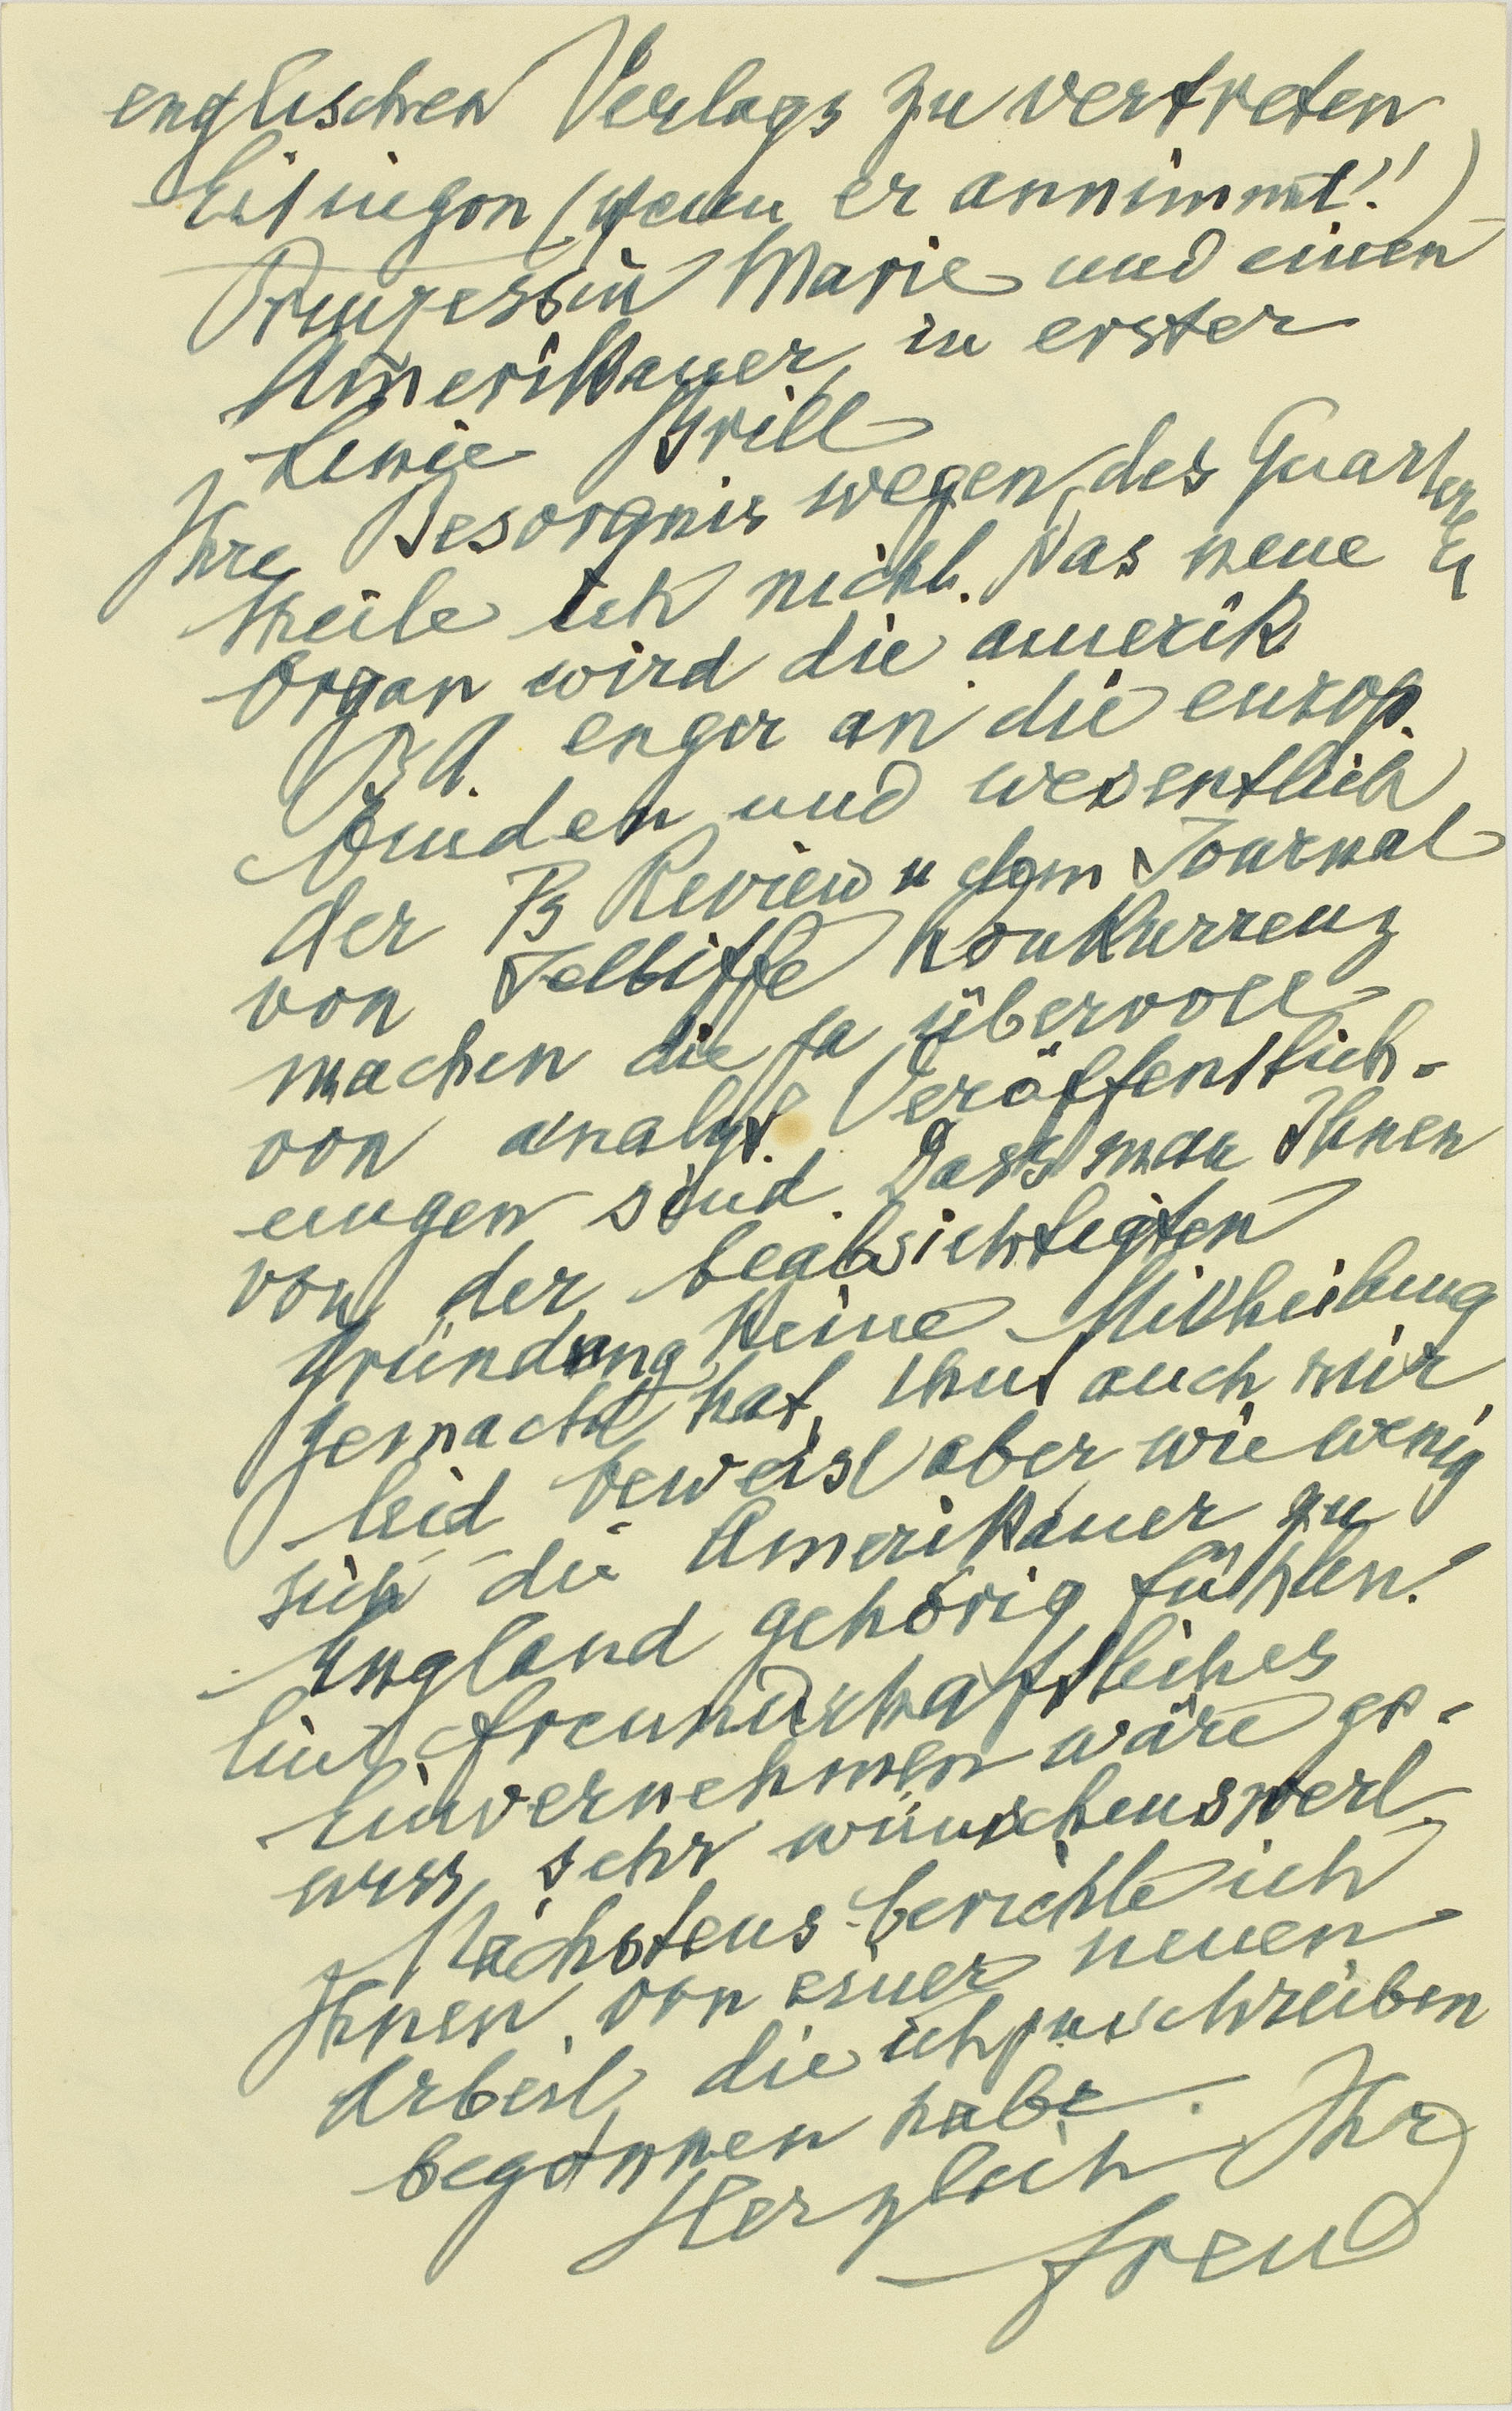 englischen Verlags zu vertreten
Eitingon (wenn er annimmt!!)
Prinzessin Marie und einen
Amerikaner, in erster
Linie Brill
Ihre Besorgnis wegen des Quarterly
theile ich nicht. Das neue
Organ wird die amerik
ΨA. enger an die europ.
binden und wesentlich
der Ps Review u dem Journal
von Jelliffe Konkurrenz
machen die ja übervoll
von analyt. Veröffentlich-
ungen sind. Dass man Ihnen
von der beabsichtigten
Gründung keine Mittheilung
gemacht hat, thut auch mir
leid beweist aber wie wenig
sich die Amerikaner zu
England gehörig fühlen.
Ein freundschaftliches
Einvernehmen wäre ge-
wiss sehr wünschenswert
Nächstens berichte ich
Ihnen von einer neuen
Arbeit, die ich zu schreiben
begonnen habe.
Herzlich Ihr
Freud